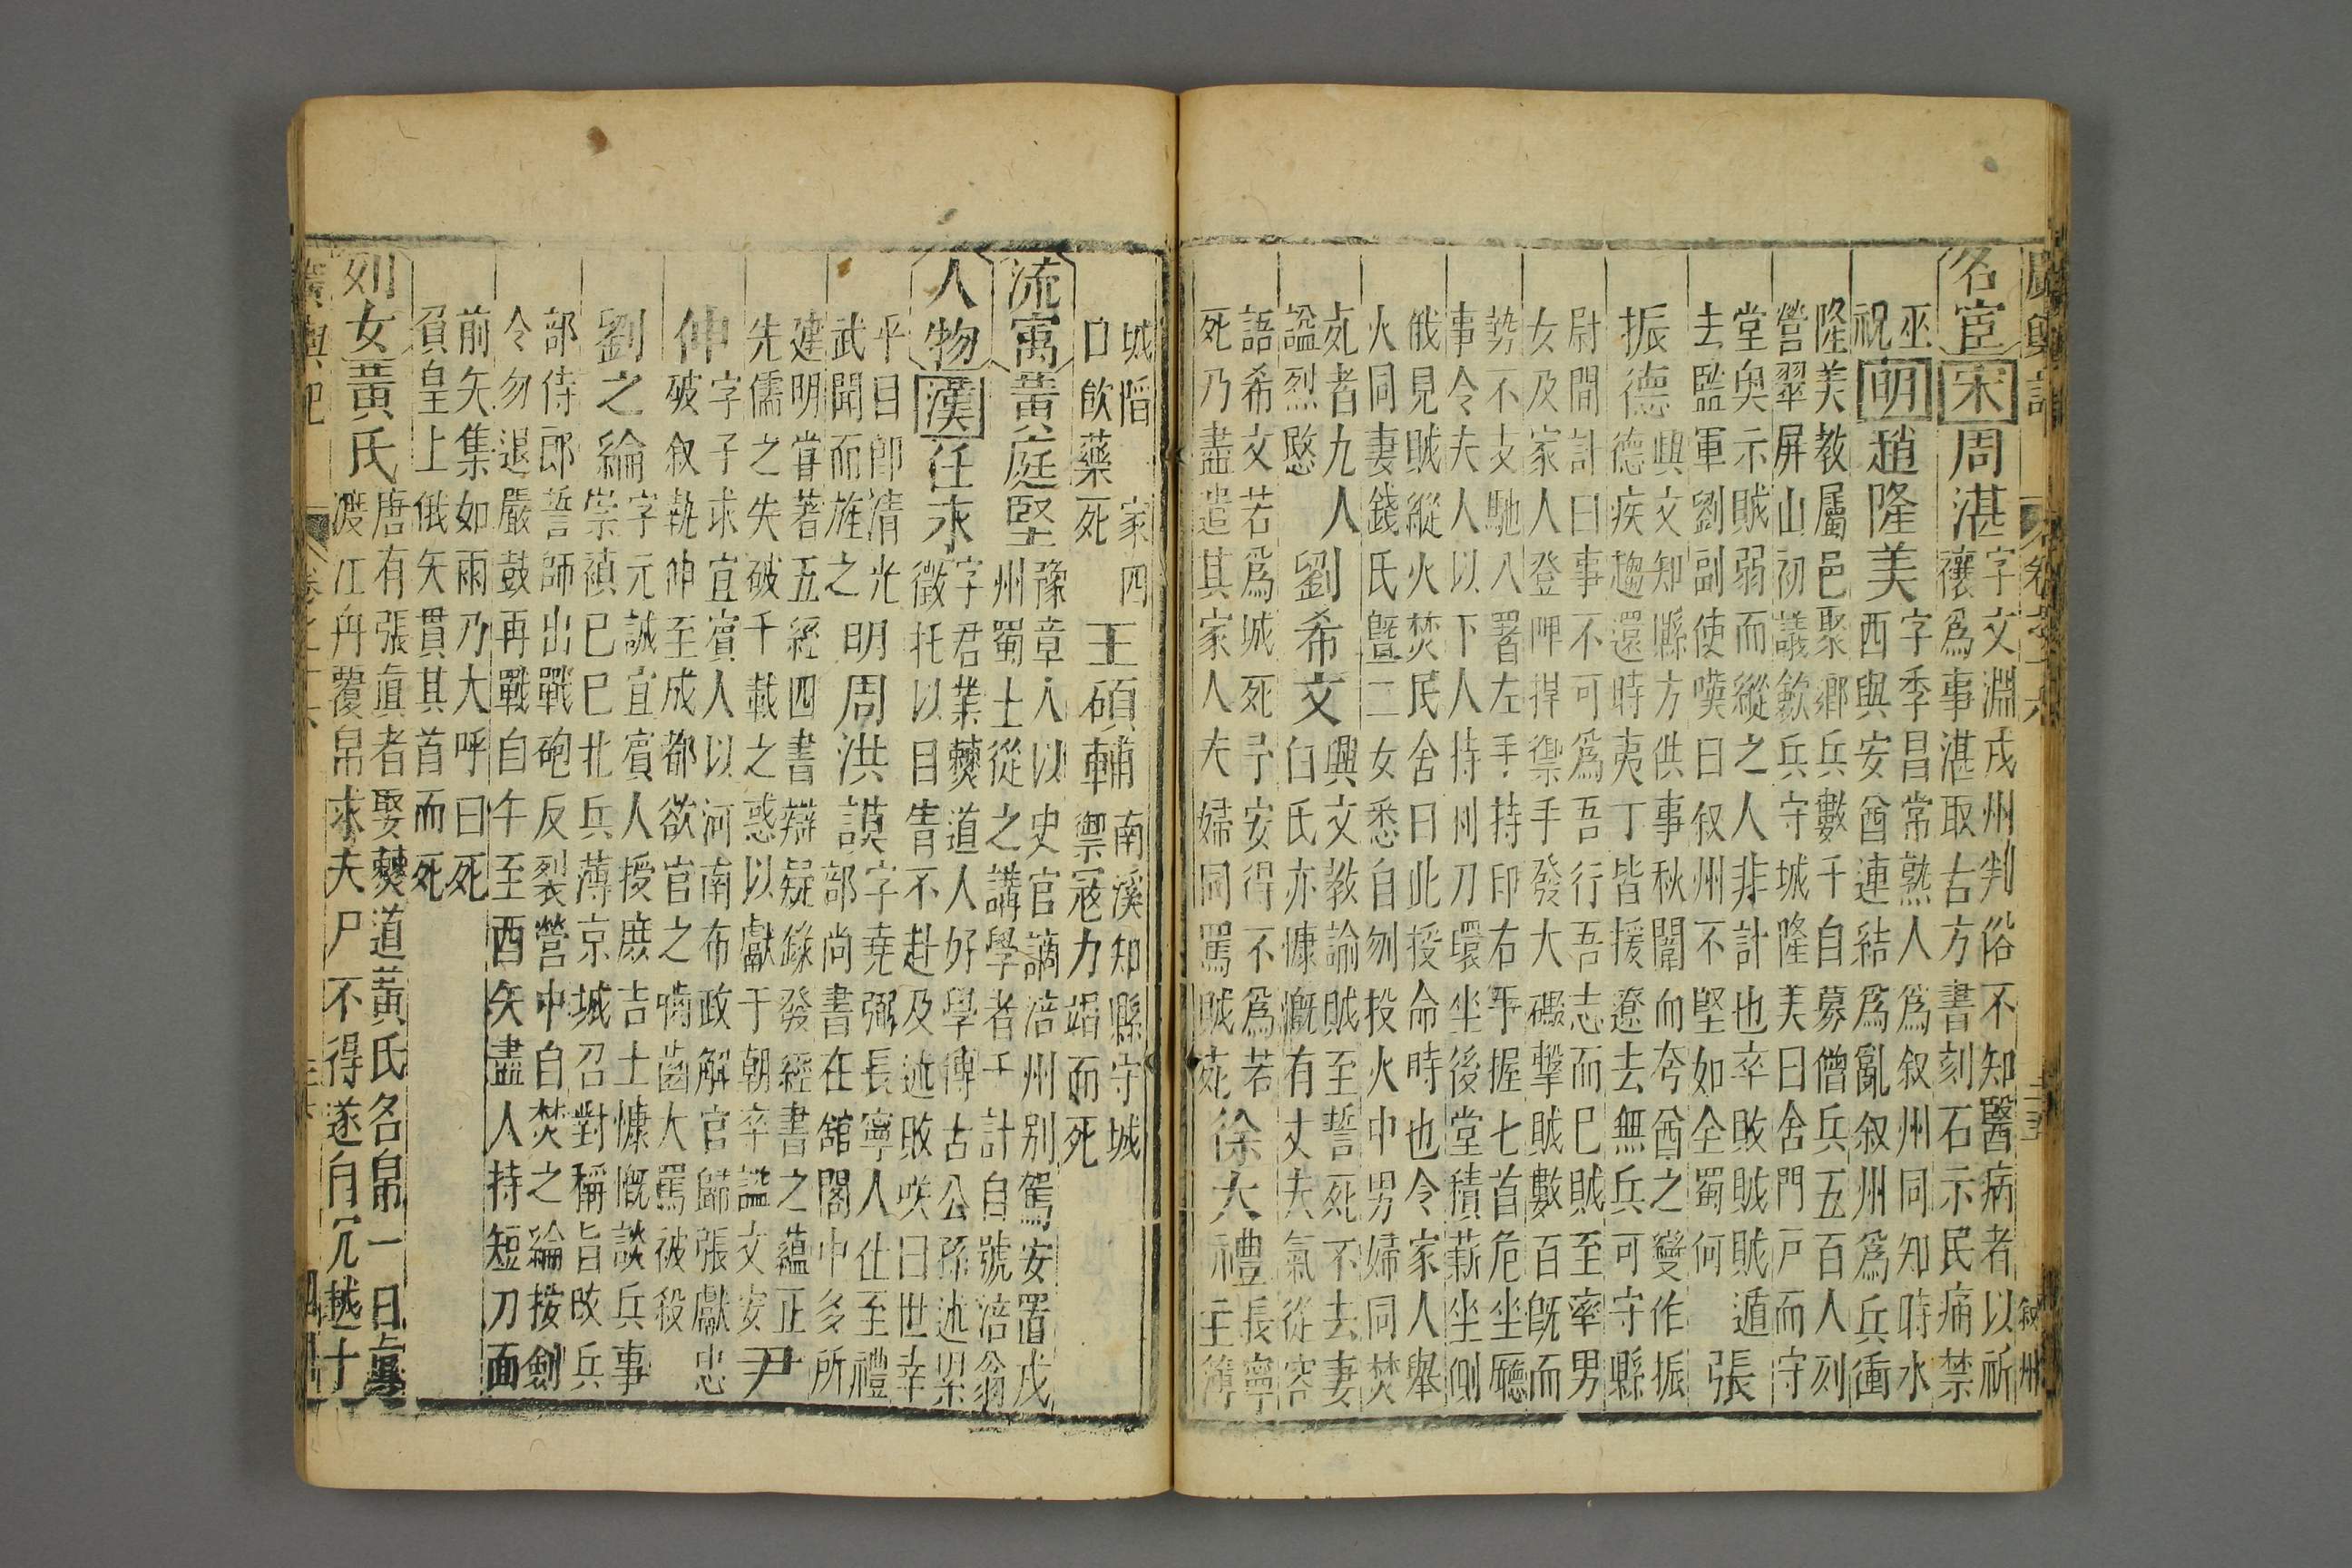 廣輿記 卷之十六 二十三 叙州
名宦 宋 周湛 字文淵戎州判俗不知醫病者以祈
禳為事湛取古方書刻石示民痛禁
巫
祝 明 趙隆美 字季昌常熟人為叙州同知時水
西與安酋連結為亂叙州為兵衝
隆美教屬邑聚鄉兵數千自募僧兵五百人刻
營翠屏山初議歛兵守城隆美曰舍門戸而守
堂奥示賊弱而縱之人非計也卒敗賊賊遁
去監軍劉副使嘆曰叙州不堅如全蜀何 張
振德 興文知縣方供事秋闈而奢酋之變作振
德疾趨還時夷丁皆援遼去無兵可守縣
尉間計曰事不可為吾行吾志而已賊至率男
女及家人登呷捍禦手發大礮擊賊數百旣而
勢不支馳入署左手持印右手握七首危坐廳
事令夫人以下人持刑刀環坐後堂積薪坐側
俄見賊縱火焚民舍曰此授命時也令家人舉
火同妻錢氏曁二女悉自刎投火中男婦同焚
死者九人
諡烈愍 劉希文 興文教諭賊至誓死不去妻
白氏亦慷慨有丈夫氣從容
語希文若為城死予安得不為若
死乃盡遣其家人夫婦同罵賊死 徐大禮 長寧
主簿
城䧟 家四
口飲藥死 王碩輔 南溪知縣守城
禦寇力竭而死
流寓 黃庭堅 豫章人以史官謫涪州別駕安置戎
州蜀士從之講學者千計自號涪翁
人物 漢 任永 字君業僰道人好學博古公孫述累
徵托以目眚不赴及述敗咲曰世幸
平目卽清光
武聞而旌之 明 周洪謨 字堯弼長寧人仕至禮
部尚書在舘閣中多所
建明嘗著五經四書辯疑錄發經書之蘊正
先儒之失破千載之惑以獻于朝卒諡文安 尹
伸 字子求宜賓人以河南布政解官歸張獻忠
破叙執伸至成都欲官之嚙齒大罵被殺
劉之綸 字元誠宜賓人授庶吉士慷慨談兵事
崇禎巳巳北兵薄京城召對稱旨改兵
部侍郎誓師出戰砲反裂營中自焚之綸按劍
令勿退嚴鼓再戰自午至酉矢盡人持短刀面
前矢集如雨乃大呼曰死
負皇上俄矢貫其首而死
列女 黃氏 唐有張眞者娶僰道黃氏名帛一日眞
渡江舟覆帛求夫尸不得遂自沉越十
廣輿記 卷之十六 四川